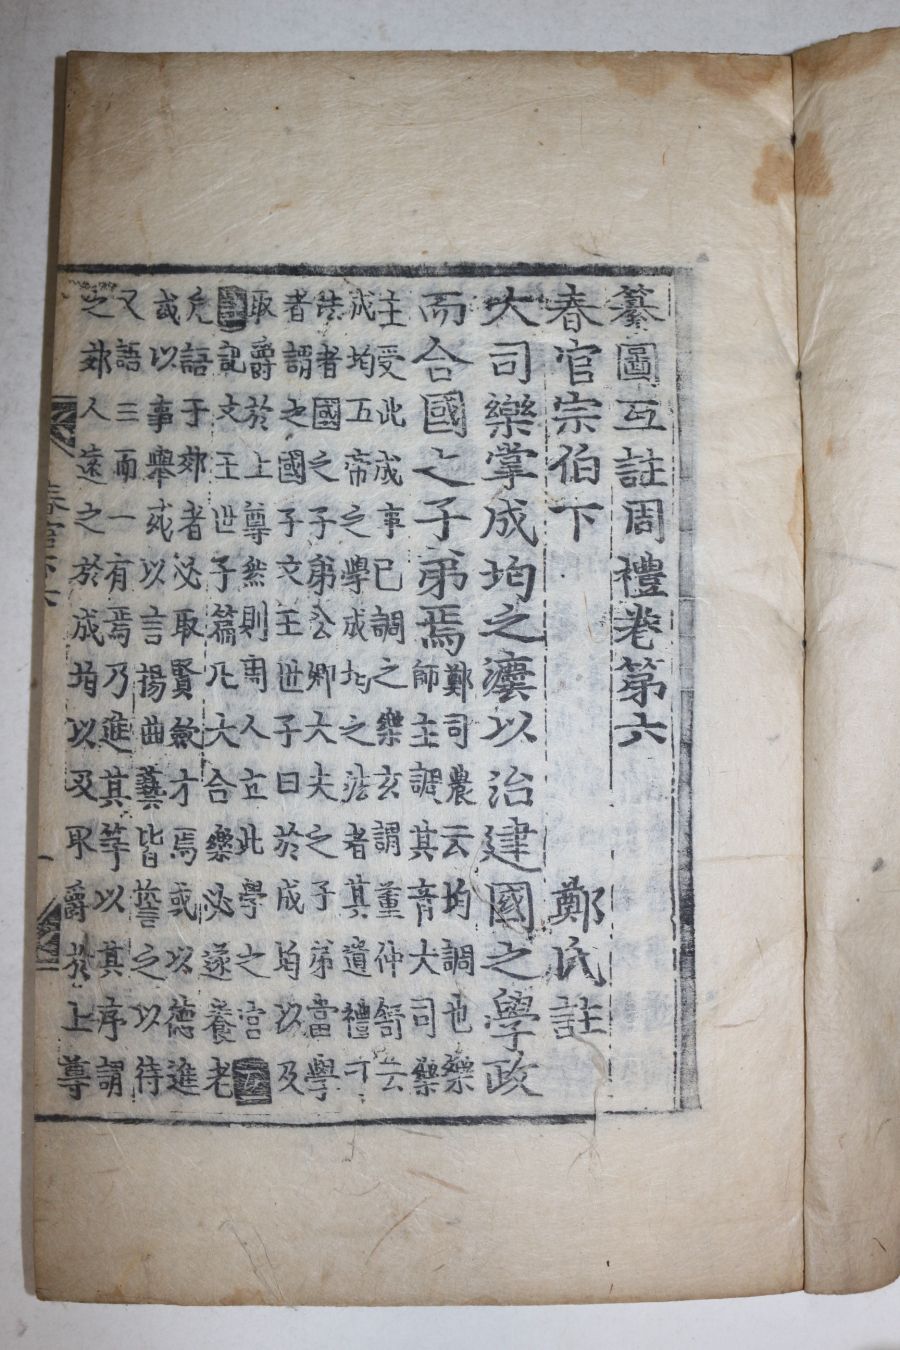 纂圖互註周禮卷第六
春官宗伯下 鄭氏註
大司樂掌成均之灋以治建國之學政
而合國之子弟焉
鄭司農云均調也樂
師主調其音大司樂
主受此成事已調之樂玄謂董仲舒云
成均五帝之學成均之法者其遺禮可
法者國之子弟公卿大夫之子弟當學
者謂之國子文王世子曰於成均以及
取爵於上尊然則周人立此學之宮互註
禮記文王世子篇凡大合樂必遂養老
凡語于郊者必取賢斂才焉或以德進
或以事舉或以言揚曲藝皆誓之以待
又語三而一有焉乃進其等以其序謂
之郊人遠之於成均以及取爵於上尊